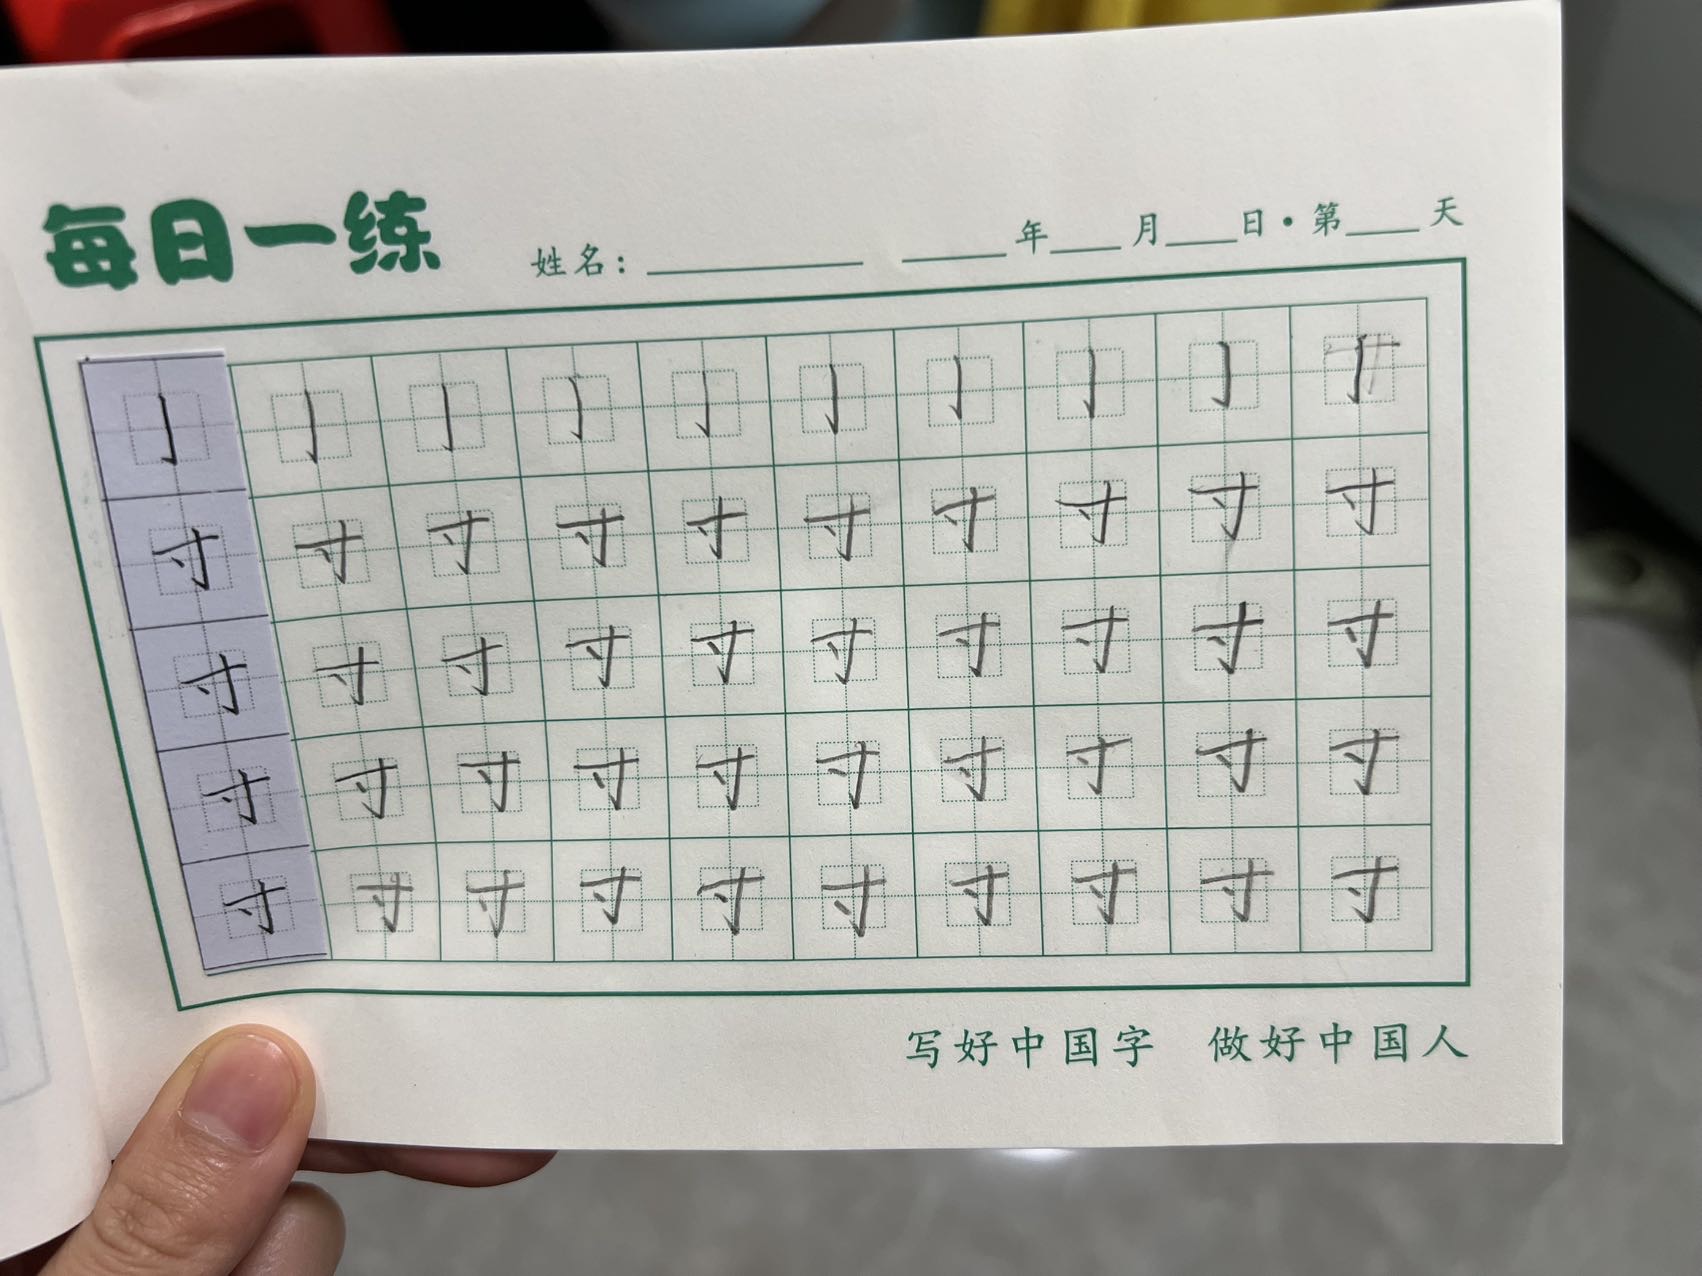 每日一练
姓名：________ ____年___月___日·第___天
亅 亅 亅 亅 亅 亅 亅 亅 亅 亅
寸 寸 寸 寸 寸 寸 寸 寸 寸 寸
寸 寸 寸 寸 寸 寸 寸 寸 寸 寸
寸 寸 寸 寸 寸 寸 寸 寸 寸 寸
寸 寸 寸 寸 寸 寸 寸 寸 寸 寸
写好中国字 做好中国人